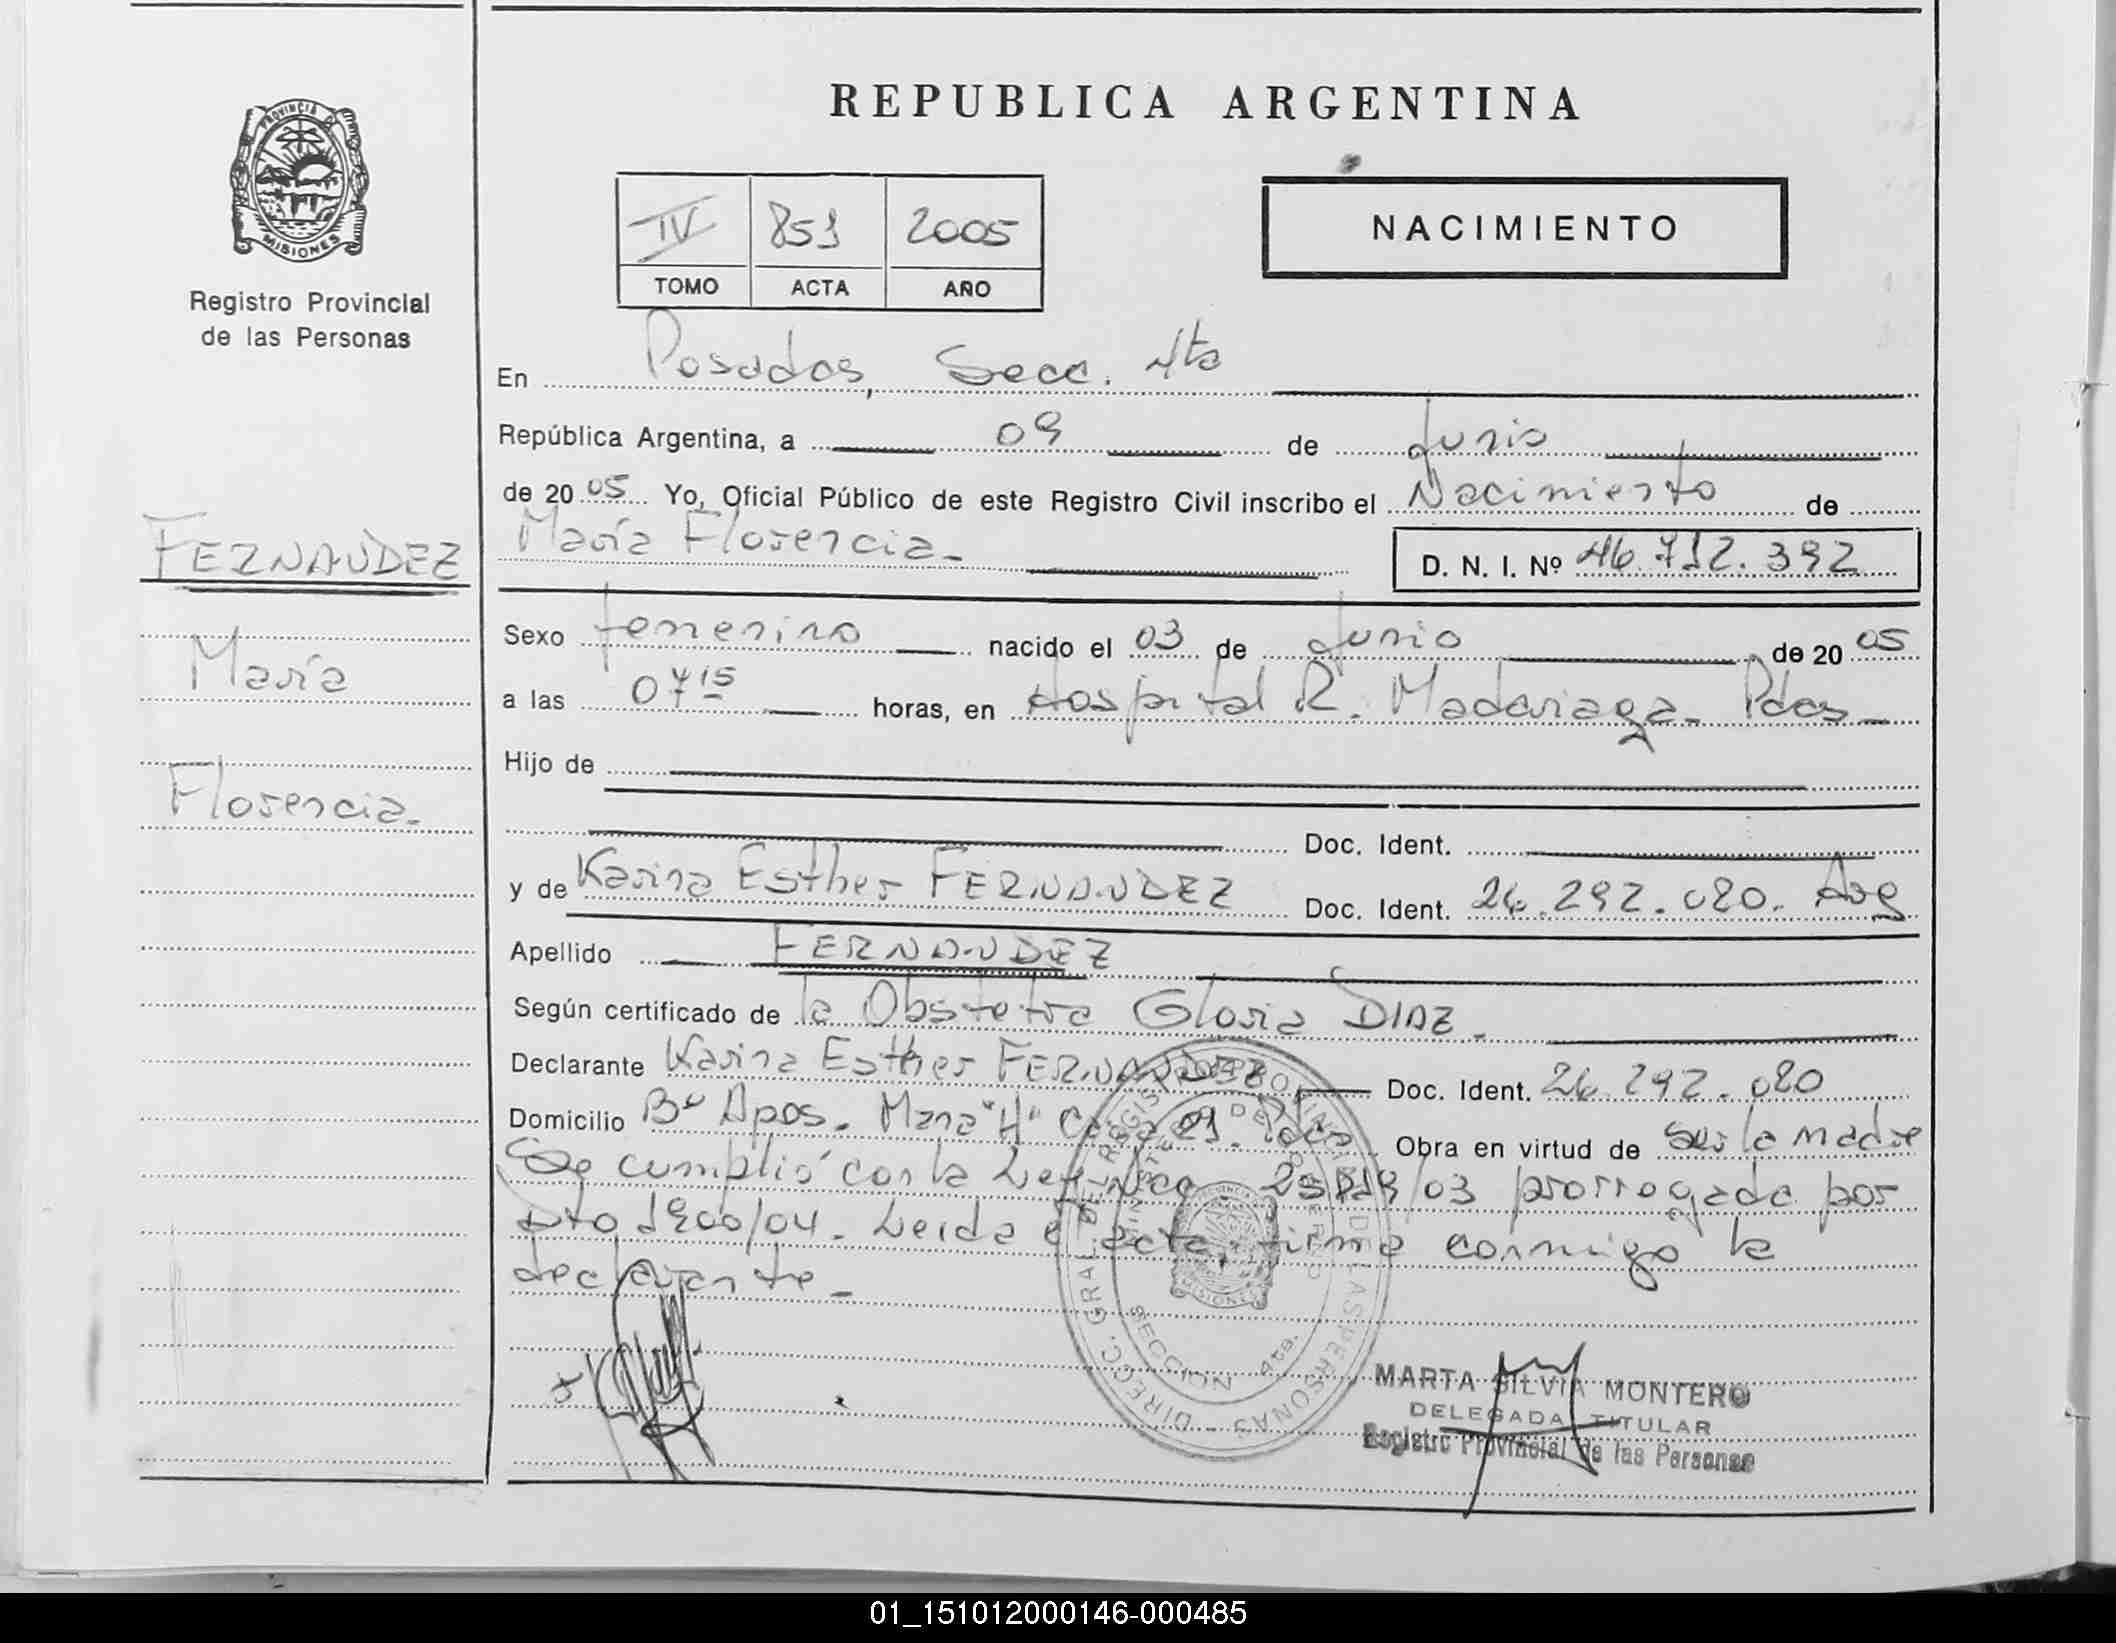 REPUBLICA ARGENTINA
PROVINCIA DE
MISIONES
Registro Provincial
de las Personas
IV 851 2005
TOMO ACTA AÑO
NACIMIENTO
En Posadas, Secc. 4ta
República Argentina, a 09 de Junio
de 2005 Yo, Oficial Público de este Registro Civil inscribo el Nacimiento de
María Florencia - D. N. I. Nº 46.712.392
FERNANDEZ
María
Florencia -
Sexo femenino nacido el 03 de Junio de 2005
a las 07 15 horas, en Hospital R. Madariaga - Pdas -
Hijo de
Doc. Ident.
y de Karina Esther FERNANDEZ Doc. Ident. 24.292.020. Arg
Apellido FERNANDEZ
Según certificado de la Obstetra Gloria DIAZ -
Declarante Karina Esther FERNANDEZ Doc. Ident. 24.292.020
Domicilio Bº Apos. Mana "H" Casa 01. Pdas Obra en virtud de ser la madre
Se cumplió con la Ley Nac 25819/03 prorrogada por
Dto 1900/04 - Leída el acta, firma conmigo la
declarante -
DIRECC. GRAL. DEL REGISTRO PROVINCIAL DE LAS PERSONAS
MINISTERIO DE GOBIERNO
MISIONES
SECCION 4ta.
MARTA SILVIA MONTERO
DELEGADA TITULAR
Registro Provincial de las Personas
01_151012000146-000485